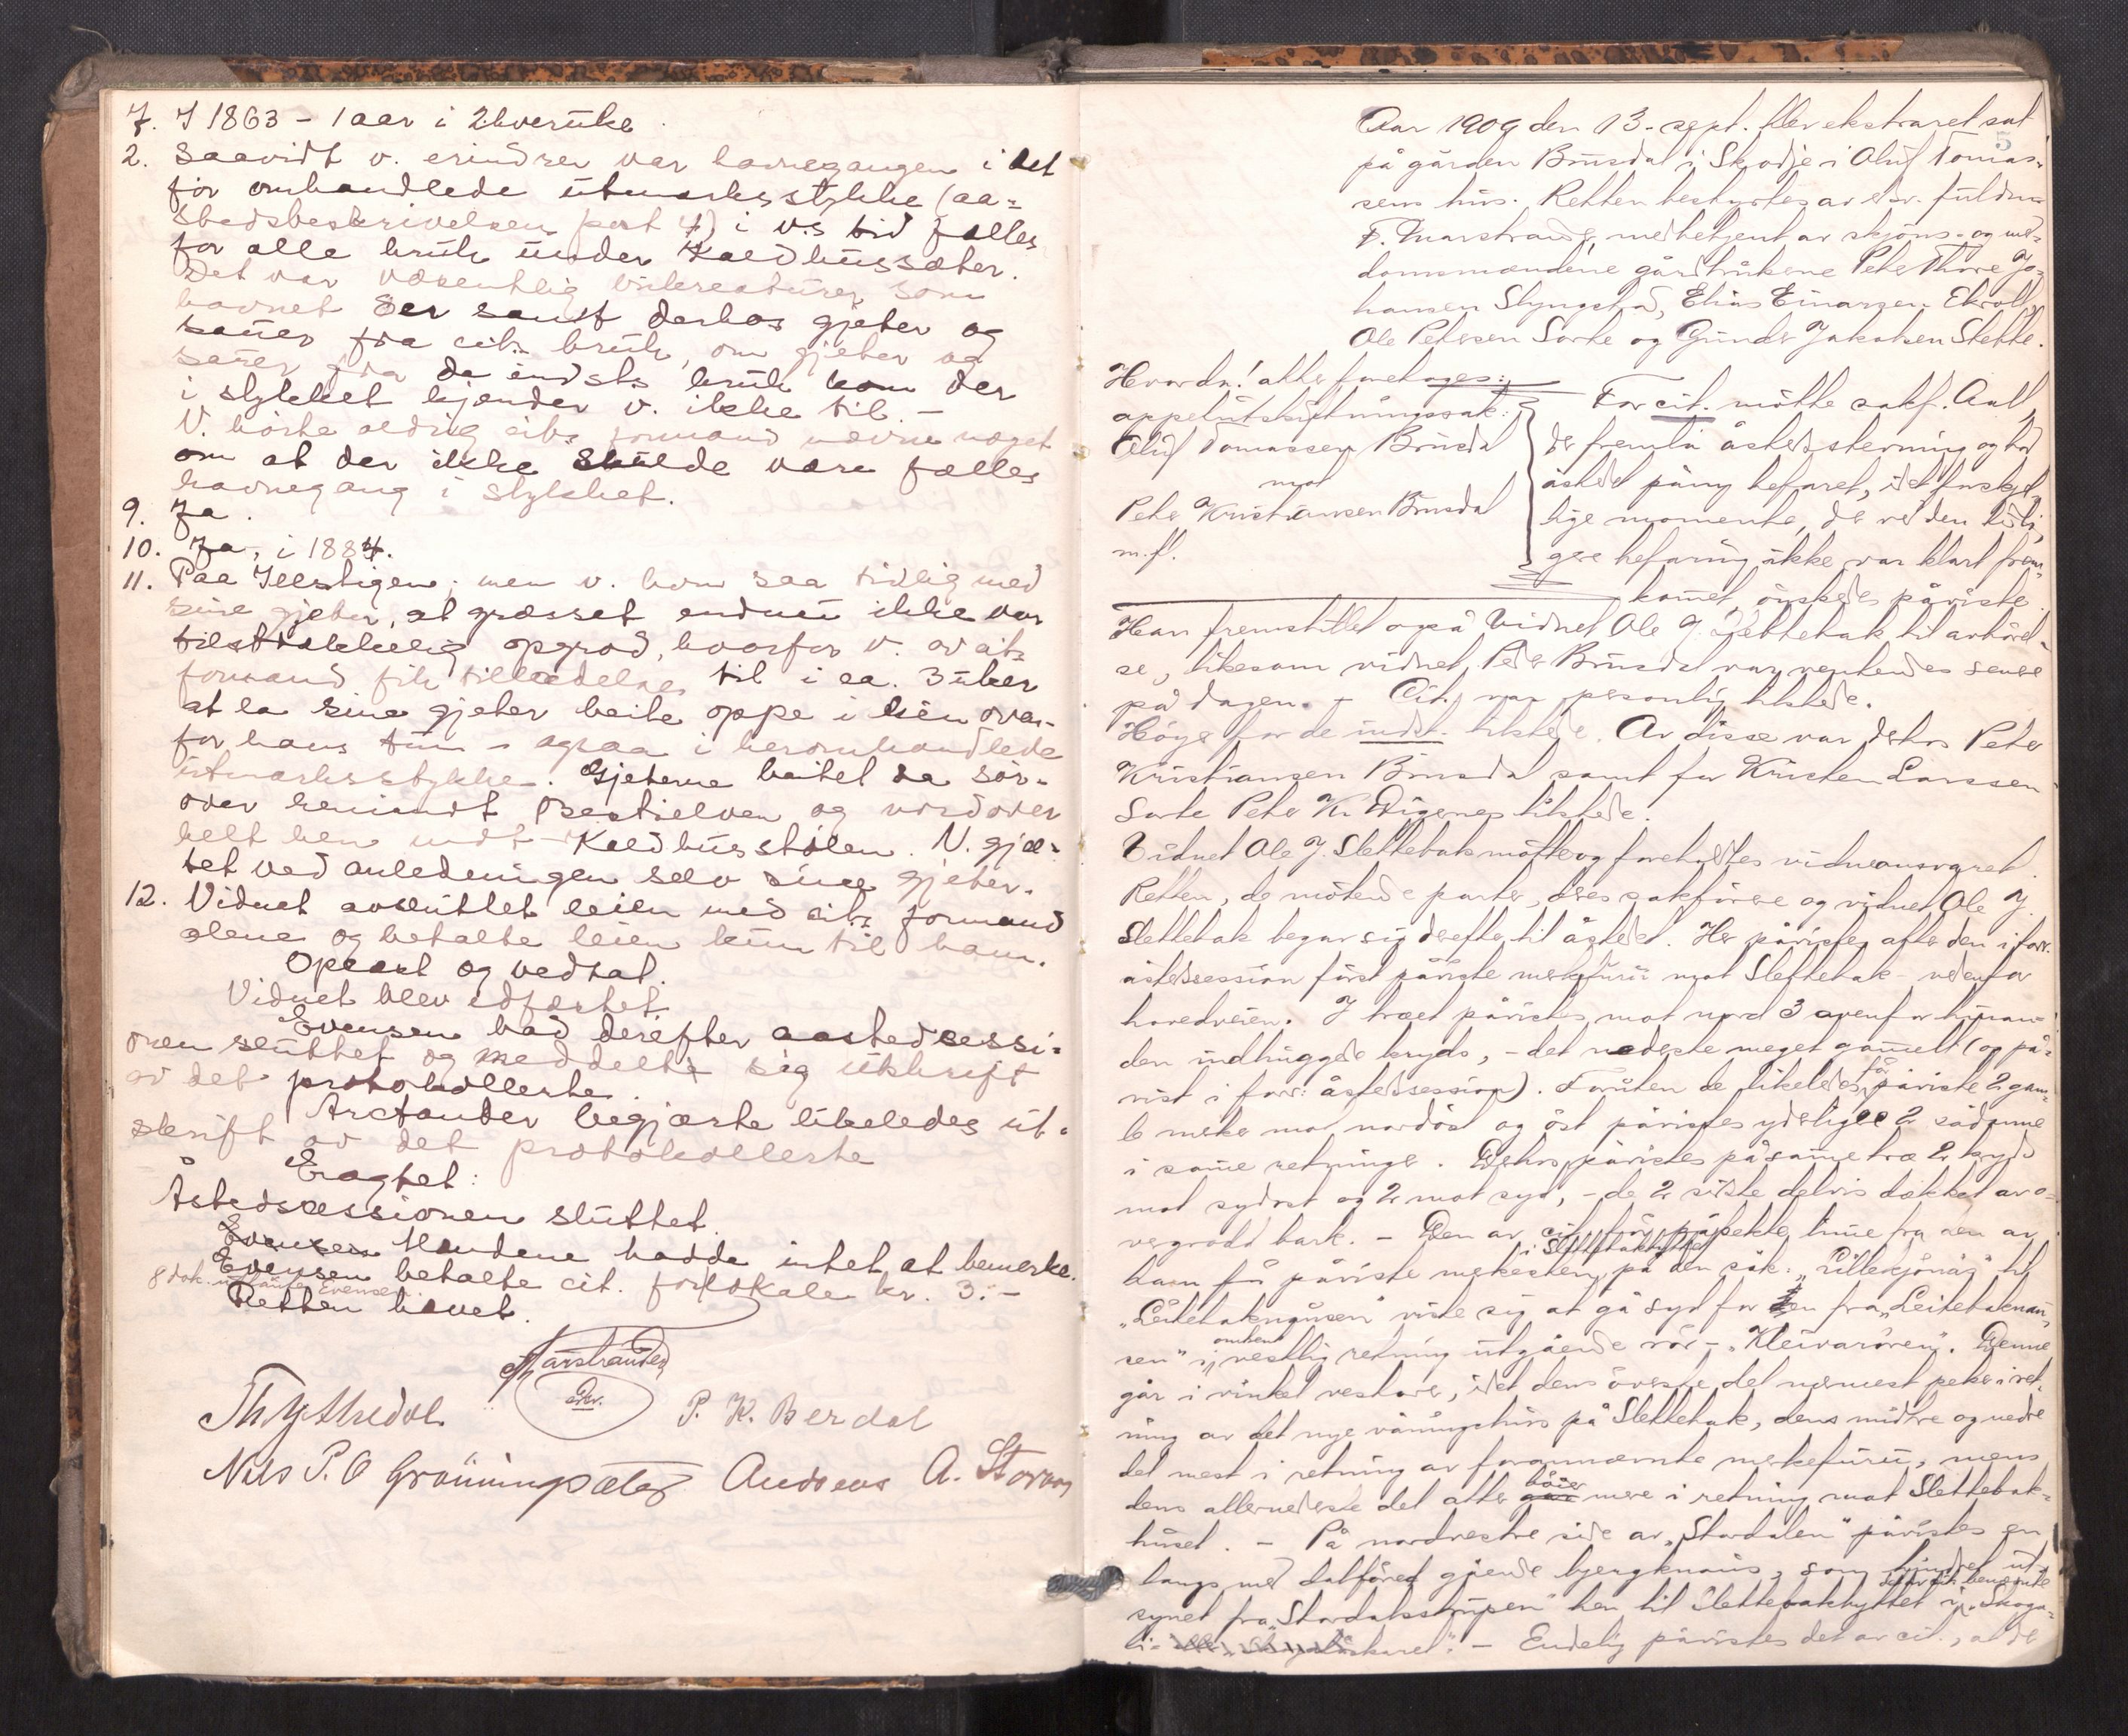 7. I 1863 – 1 aar i 2 hveruke.
2. Saavidt v. erindrer var havnegangen i det
før omhandlede utmarksstykke (aa-
stedsbeskrivelsen post 4) i v.s tid fælles
for alle bruk under Kaldhussæter.
Det var væsentlig                 som
havnet der samt derhos gjeter og
sauer fra cit.s bruk, om gjeter og
sauer fra de indst.s bruk kom der
i stykket kjender v. ikke til. –
V. hørte aldrig cit.s formand nævne noget
om at der ikke skulde være fælles
havnegang i stykket.
9. Ja.
10. Ja, i 1884.
11. Paa          ; men v. kom saa tidlig med
sine gjeter, at græsset endnu ikke var
tilstrækkelig opgrod, hvorfor v. av cit.s
formand fik tilladelse til i ca. 3 uker
at la sine gjeter beite oppe i lien oven-
for hans tun – ogsaa i heromhandlede
utmarksstykke. Gjeterne beitet da sør-
over henimot           og nordover
helt hen mot Kaldhusstølen. V. gjæ-
tet ved anledningen selv sine gjeter.
12. Vidnet avsluttet leien med cit.s formand
alene og betalte leien kun til ham.
Oplæst og vedtat.
Vidnet blev edfæstet.
Evensen bad derefter aastedsessi-
onen sluttet og meddelt sig utskrift
av det protokollerte.
Arctander begjærte likeledes ut-
skrift av det protokollerte
Eragtet:
Åstedsessionen sluttet.
Evensen Mændene hadde intet at bemerke.
Evensen betalte cit. for lokale kr. 3.–
8 dok.           Evensen.
Retten hævet.
Marstrander
edsv.
Th Ytredal P. K. Berdal
Nils P. O Grønningsæter Andreas A. Storaas
5
Aar 1909 den 13. sept. blev ekstraret sat
på gården Brusdal i Skodje i Oluf Tomas-
sens hus. Retten bestyrtes av edsv. fuldm.
F. Marstrander, medbetjent av skjøns- og med-
domsmændene gårdbrukerne Peter Thore Jo-
hansen Slyngstad, Elias Einarsen Ekroll,
Ole Petersen Sorte og Gunder Jakobsen Stette.
Hvorda! atter foretages:
appelutskiftningssak:
Oluf Tomassen Brusdal
mot
Peter Kristiansen Brusdal
m.fl.
For cit. møtte sakf. Aall,
der fremla åstedsstevning og bad
åstedet påny befaret, idet forskjel-
lige momenter, der ved den tidli-
gere befaring ikke var klart frem-
kommet, ønskedes påviste.
Han fremstillet også vidnet Ole J. Slettebak til avhørel-
se, likesom vidnet Peder Brusdal var ventendes senere
på dagen. – Cit. var personlig tilstede.
Høyer for de indst. tilstede. Av disse var derhos Peter
Kristiansen Brusdal samt for Kristen Larssen
Sorte Peter K. Digernes tilstede.
Vidnet Ole J. Slettebak møtte og foreholdtes vidneansvaret.
Retten, de møtende parter, deres sakførere og vidnet Ole J.
Slettebak begav sig derefter til åstedet. Her påvistes atter den i forr.
åstedssession først påviste merkefuru mot Slettebak nedenfor
hovedveien. I træet påvistes mot nord 3 ovenfor hinan-
den indhuggede kryds, – det nederste meget gammelt (og på-
vist i forr. åstedssession). Foruten de likeledes før påviste 2 gam-
le merker mot nordøst og øst påvistes yderligere 2 sådanne
i samme retninger. Derhos påvistes på samme træ 2 kryds
mot sydost og 2 mot syd, – de 2 siste delvis dækket av o-
vergrodd bark. – Den av cit. før påpekte linie fra den av
ham før påviste merkesten i Slettebakbyttet på den såk. „Lillekjønnås" til
„Leitebaknausen" viste sig at gå syd for den fra „Leitebaknau-
sen" i omtrent vestlig retning utgående rør – „Kleivarøren". Denne
går i vinkel vestover, idet dens øverste del nærmest peker i ret-
ning av det nye våningshus på Slettebak, dens midtre og nedre
del mest i retning av forannævnte merkefuru, mens
dens allernederste del atter bøier mere i retning mot Slettebak-
huset. – På nordvestre side av „Stordalen" påvistes en
langs med dalføret gående bjergknaus, som hindret ut-
synet fra „Stordalsstrupen" hen til Slettebakbyttet i det av cit. benævnte „Skoga-
li–          ". – Endelig påvistes det av cit., at de